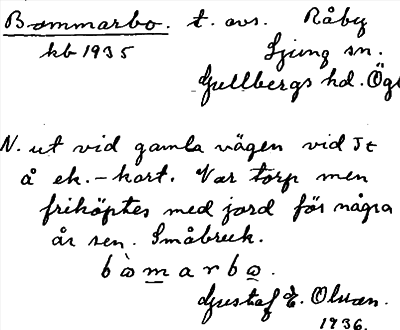 Bommarbo. t. avs. Råby
kb 1935 Ljung sn.
Gullbergs hd. Ögl
N. ut vid gamla vägen vid It
å ek.-kart. Var torp men
friköptes med jord för några
år sen. Småbruk.
bòmarbo.
Gustaf E. Olson.
1936.